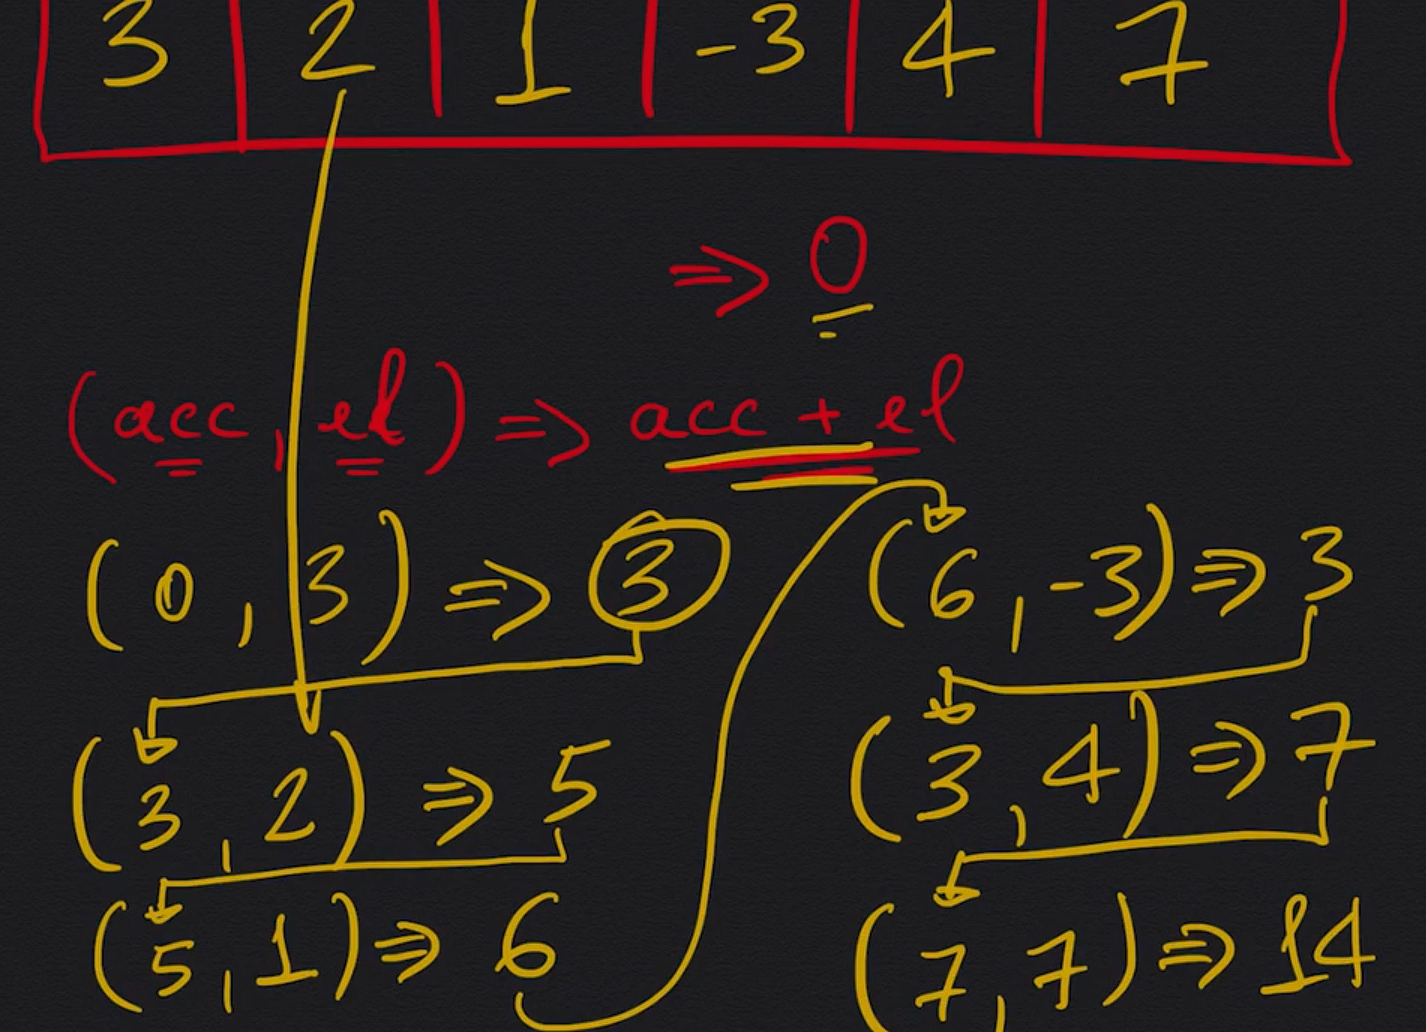 3 2 1 -3 4 7
=> 0
(acc, el) => acc + el
(0, 3) => 3
(3, 2) => 5
(5, 1) => 6
(6, -3) => 3
(3, 4) => 7
(7, 7) => 14